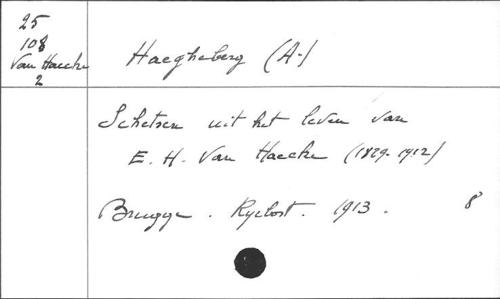 25
108
Van Haecke
2
Haegheberg (A.)
Schetsen uit het leven van
E. H. Van Haecke (1829-1912)
Brugge. Ryckbost. 1913. 8